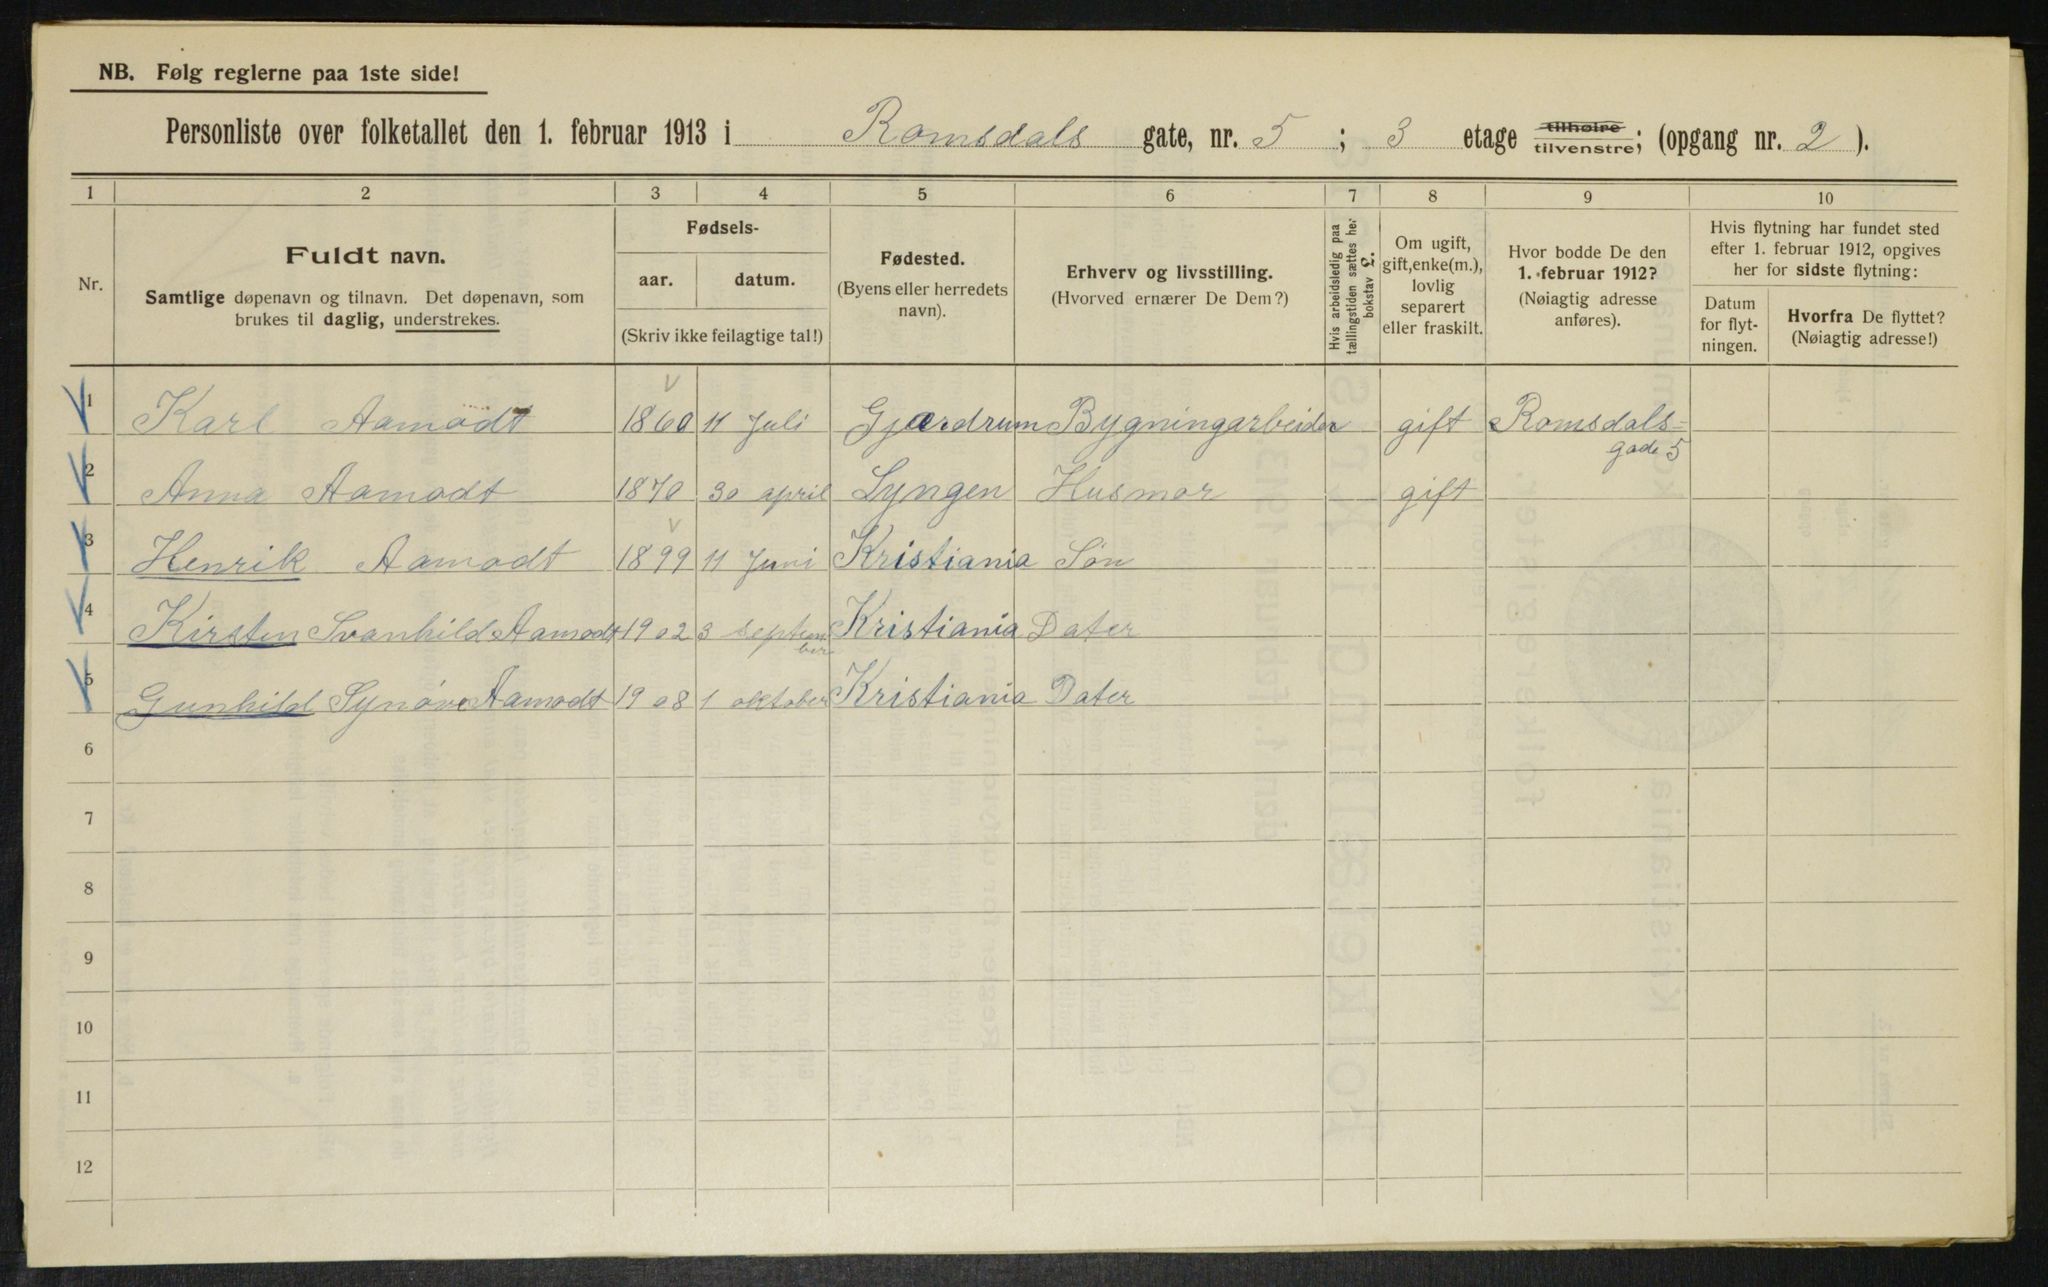 NB. Følg reglerne paa 1ste side!
Personliste over folketallet den 1. februar 1913 i Romsdals gate, nr. 5 ; 3 etage tilhøire tilvenstre; (opgang nr. 2 ).
1 2 3 4 5 6 7 8 9 10
Nr.
Fuldt navn.
Samtlige døpenavn og tilnavn. Det døpenavn, som
brukes til daglig, understrekes.
Fødsels-
aar. datum.
(Skriv ikke feilagtige tal!)
Fødested.
(Byens eller herredets
navn).
Erhverv og livsstilling.
(Hvorved ernærer De Dem?)
Hvis arbeidsledig paa
tællingstiden sættes her
bokstav L.
Om ugift,
gift, enke(m.),
lovlig
separert
eller fraskilt.
Hvor bodde De den
1. februar 1912?
(Nøiagtig adresse
anføres).
Hvis flytning har fundet sted
efter 1. februar 1912, opgives
her for sidste flytning:
Datum
for flyt-
ningen.
Hvorfra De flyttet?
(Nøiagtig adresse!)
1 Karl Aamodt 1860 11 Juli Gjerdrum Bygningarbeider gift Romsdals=
gade 5
2 Anna Aamodt 1870 30 april Lyngen Husmor gift
3 Henrik Aamodt 1899 11 Juni Kristiania Søn
4 Kirsten Svanhild Aamodt 1902 3 septem
ber Kristiania Dater
5 Gunhild Synøve Aamodt 1908 1 oktober Kristiania Dater
6
7
8
9
10
11
12